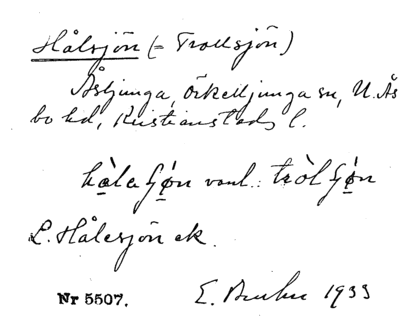 Hålsjön (= Trollsjön)
Åsljunga, Örkelljunga sn, N. Ås
bo hd, Kristianstads l.
hàla ʃǿn vanl.: tròl ʃǿn
L. Hålesjön ek.
Nr 5507. E. Bruhn 1933